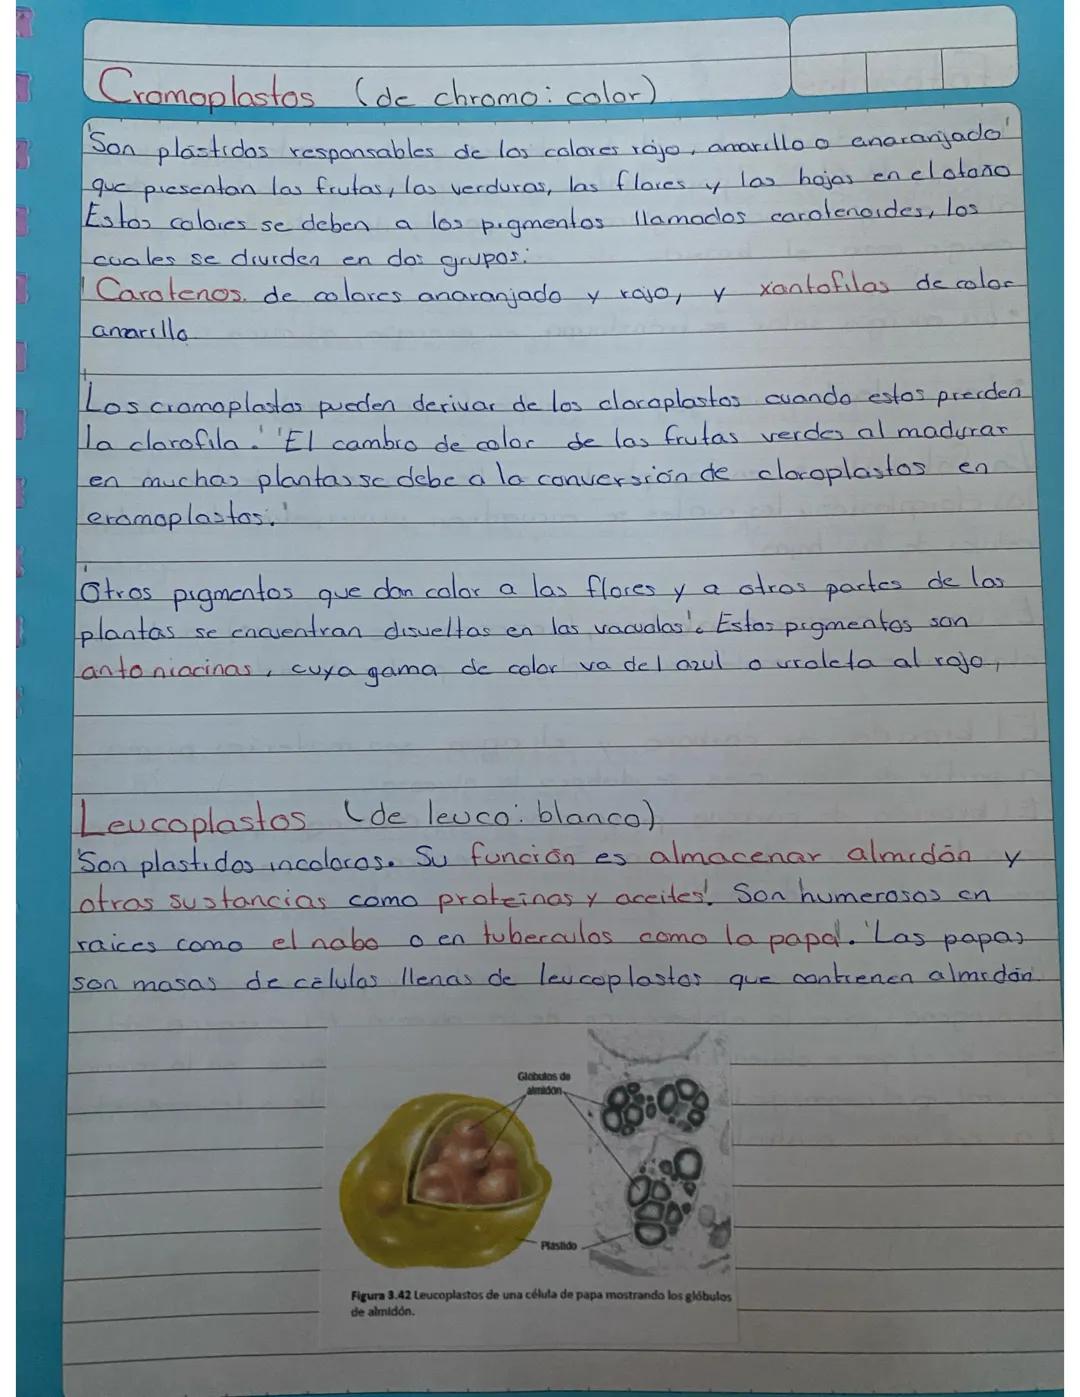 Cromoplastos (de chromo: color)
'Son plástidos responsables de los colores rojo, amarillo o anaranjado'
que presentan las frutas, las verduras, las flores y las hojas en el otoño
Estos colores se deben a los pigmentos llamados carotenoides, los
cuales se dividen en dos grupos:
'Carotenos. de colores anaranjado y rojo, y xantofilas de color
amarillo.
Los cromoplastos pueden derivar de los cloroplastos cuando estos pierden
la clorofila. 'El cambio de color de las frutas verdes al madurar
en muchas plantas se debe a la conversión de cloroplastos en
cromoplastos.'
'Otros pigmentos que dan color a las flores y a otras partes de las
plantas se encuentran disueltos en las vacuolas'. Estos pigmentos son
antoniacinas, cuya gama de color va del azul o violeta al rojo,
Leucoplastos (de leuco: blanco)
'Son plastidos incoloros. Su función es almacenar almidón y
otras sustancias como proteinas y aceites'. Son numerosos en
raices como el nabo o en tuberculos como la papa. 'Las papas
son masas de células llenas de leucoplastos que contienen almidón.
Glóbulos de
almidón
Plastido
Figura 3.42 Leucoplastos de una célula de papa mostrando los glóbulos
de almidón.